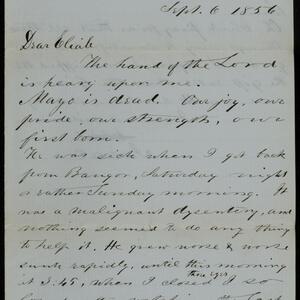 Sept. 6 1856
Dear Eliab
The hand of the Lord
is heavy upon me.
Mayo is dead. Our joy, our
pride, our strength, our
first born.
He was sick when I got back
from Bangor, Saturday night
or rather Sunday morning. It
was a malignant dysentery, and
nothing seemed to do any thing
to help it. He grew worse & worse
sunk rapidly, until this morning
at 3.45, when I closed those eyes I so